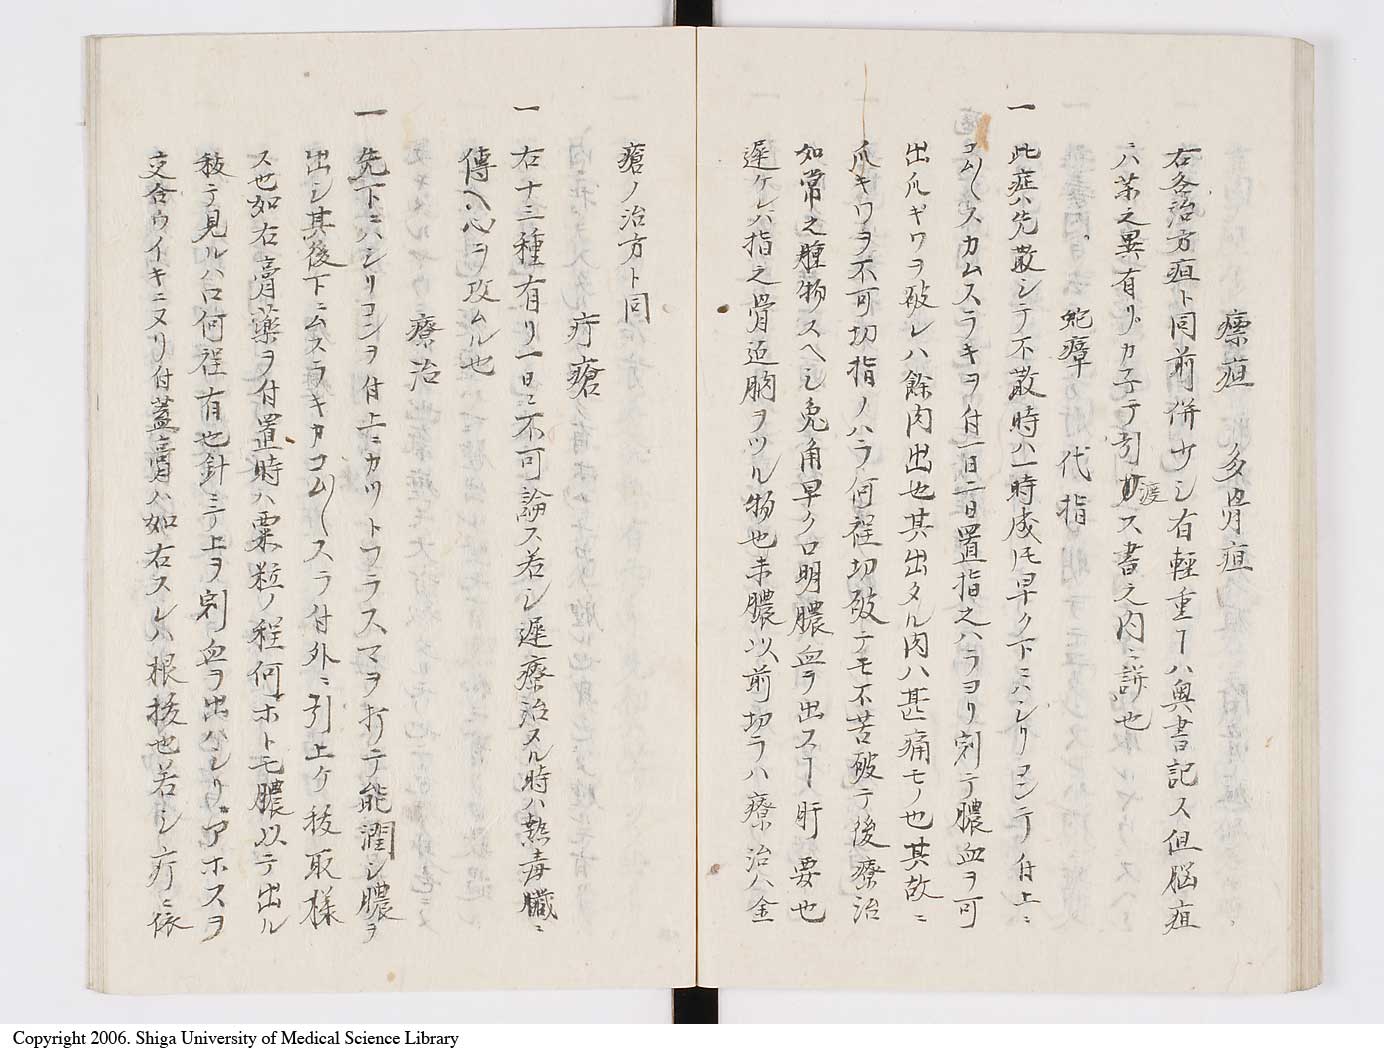 瘭疽 多骨疽
右灸治方疽ト同前併サシ有輕重ヿハ奥書記ス但脳疽
ハ茶之異有リカ子テ引渡ス書之内ニ誁也
蛇瘴 代指
一 此症ハ先散シテ不散時ハ一時成圧早ク下ニハシリコンテ付上ニ
コム〱スカムスラキヲ付一日二日置指之ハラヨリ刺テ膿血ヲ可
出爪ギワヲ破レハ餘肉出也其出タル肉ハ甚痛モノ也其故ニ
爪キワヲ不可切指ノハラ何程切破テモ不苦破テ後療治
如常之腫物スヘシ兎角早ク口明膿血ヲ出スヿ肝要也
遅ケレハ指之骨迄朒ヲツル物也未膿以前切ラハ療治ハ金
瘡ノ治方ト同
疔瘡
一 右十三種有リ一日モ不可論ス若シ遅療治スル時ハ熱毒臓ニ
傳ヘ心ヲ攻ムル也
療治
一 先下ニハシリコンヲ付上ニカツットフラスマヲ打テ能潤シ膿ヲ
出シ其後下ニムスラキカコム〱スラ付外ニ引上ケ抜取様
ス也如右膏薬ヲ付置時ハ粟粒ノ程何ホトモ膿以テ出ル
抜テ見ルハ口何程有也針ニテ上ヲ刺血ヲ出ハシリアホスヲ
交合ウイキニヌリ付蓋膏ハ如右スレハ根抜也若シ疔ニ依